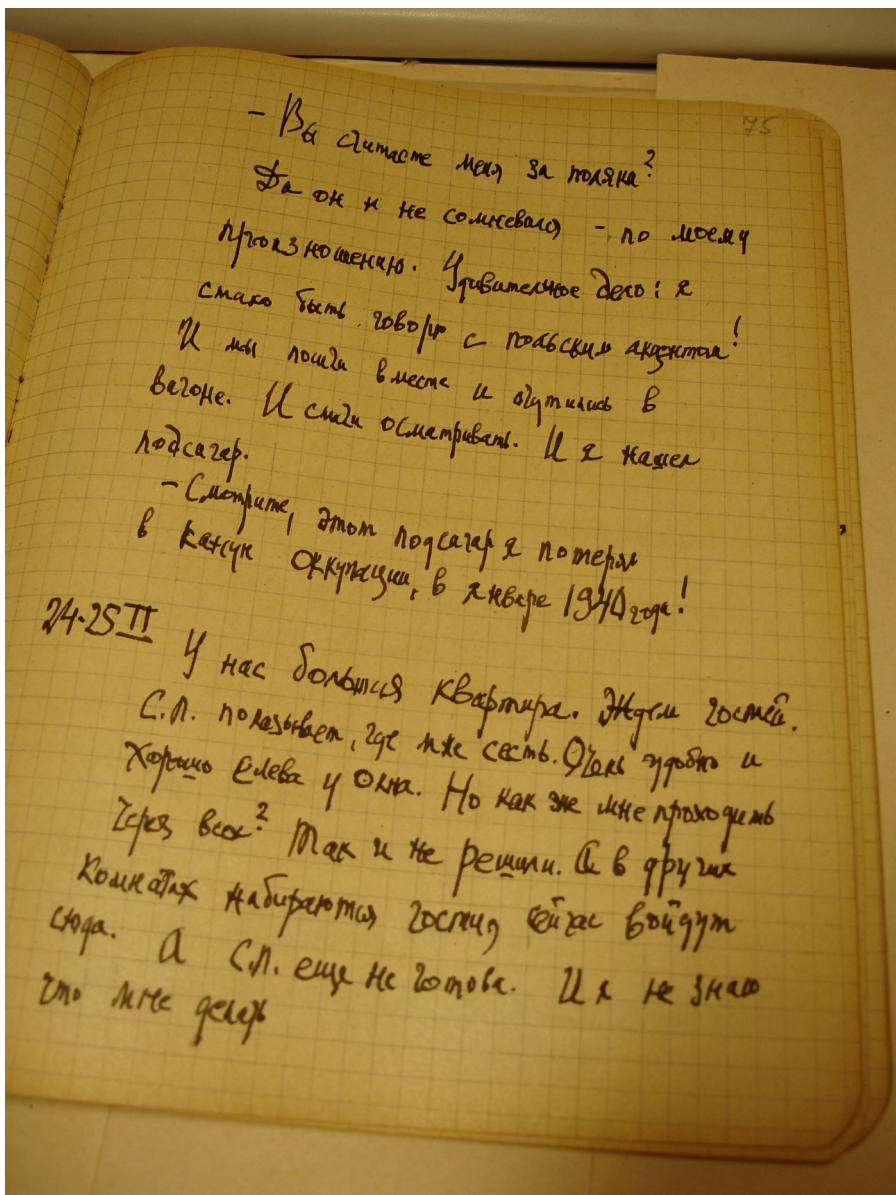 75
– Вы считаете меня за поляка?
Да он и не сомневался – по моему
произношению. Удивительное дело: я
стало быть говорю с польским акцентом!
И мы пошли вместе и очутились в
вагоне. И стали осматривать. И я нашел
подсагар.
– Смотрите, этот подсагар я потерял
в канун оккупации, в январе 1940 года!
24-25 II
У нас большая квартира. Ждем гостей.
С.П. показывает, где мне сесть. Очень удобно и
хорошо слева у окна. Но как же мне проходить
через всех? Так и не решили. А в других
комнатах набираются гости, сейчас войдут
сюда. А С.П. еще не готова. И я не знаю
что мне делать